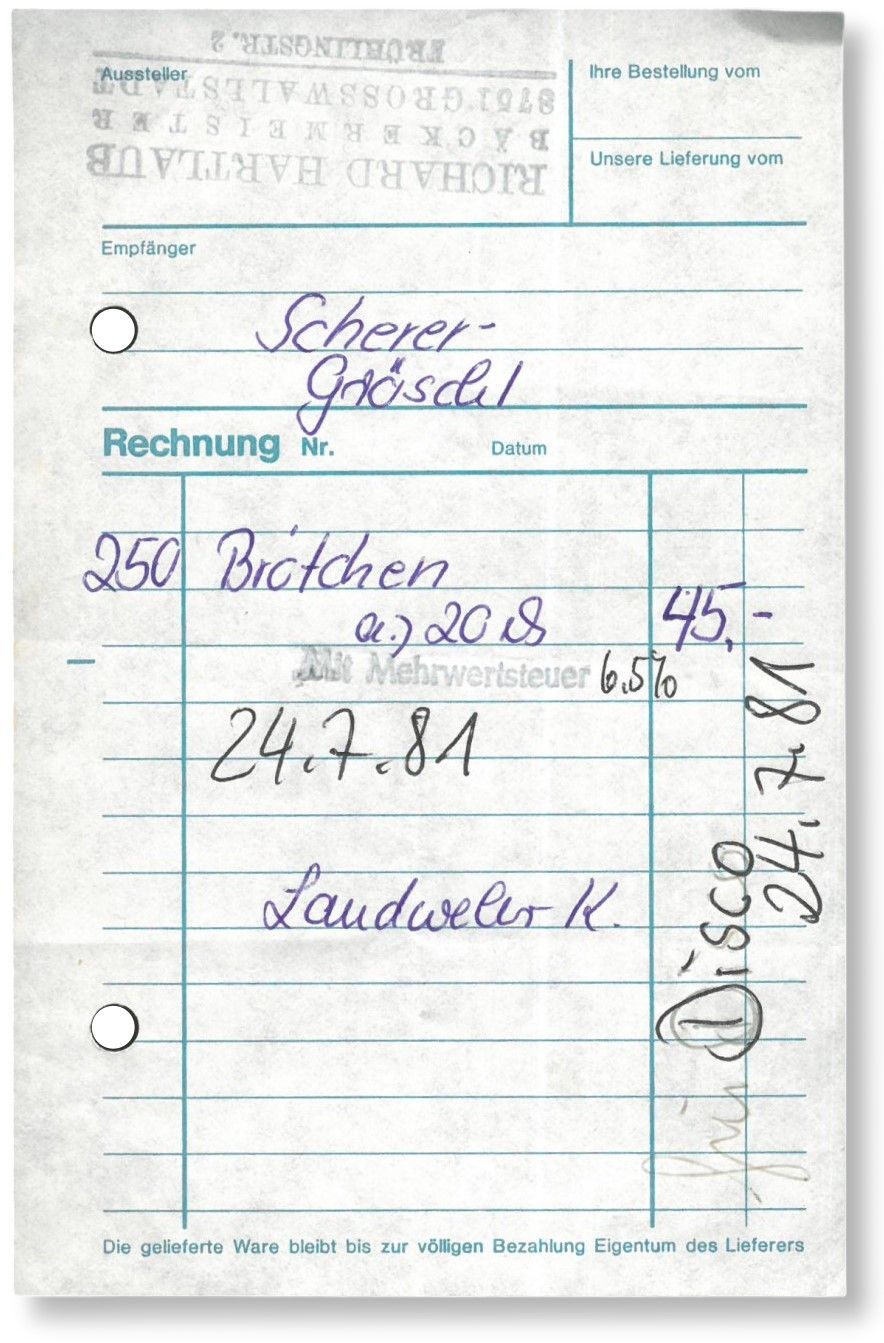 RICHARD HARTLAUB
BÄCKERMEISTER
8751 GROSSWALLSTADT
FRÜHLINGSTR. 2
Aussteller
Ihre Bestellung vom
Unsere Lieferung vom
Empfänger
Scherer-
Gröschl
Rechnung Nr. Datum
250 Brötchen
a.) 20 45,-
Mit Mehrwertsteuer 6.5%
24.7.81
Landwehr K.
für Disco
24.7.81
Die gelieferte Ware bleibt bis zur völligen Bezahlung Eigentum des Lieferers